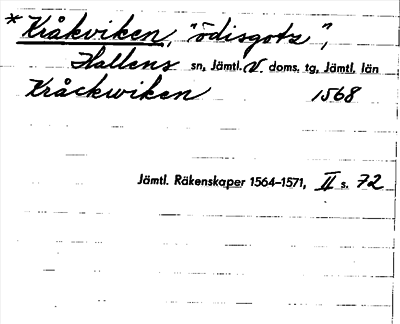 * Kråkviken, "ödisgots",
Hallens sn, Jämtl. V. doms. tg, Jämtl. län
Kråckwiken 1568
Jämtl. Räkenskaper 1564–1571, II s. 72